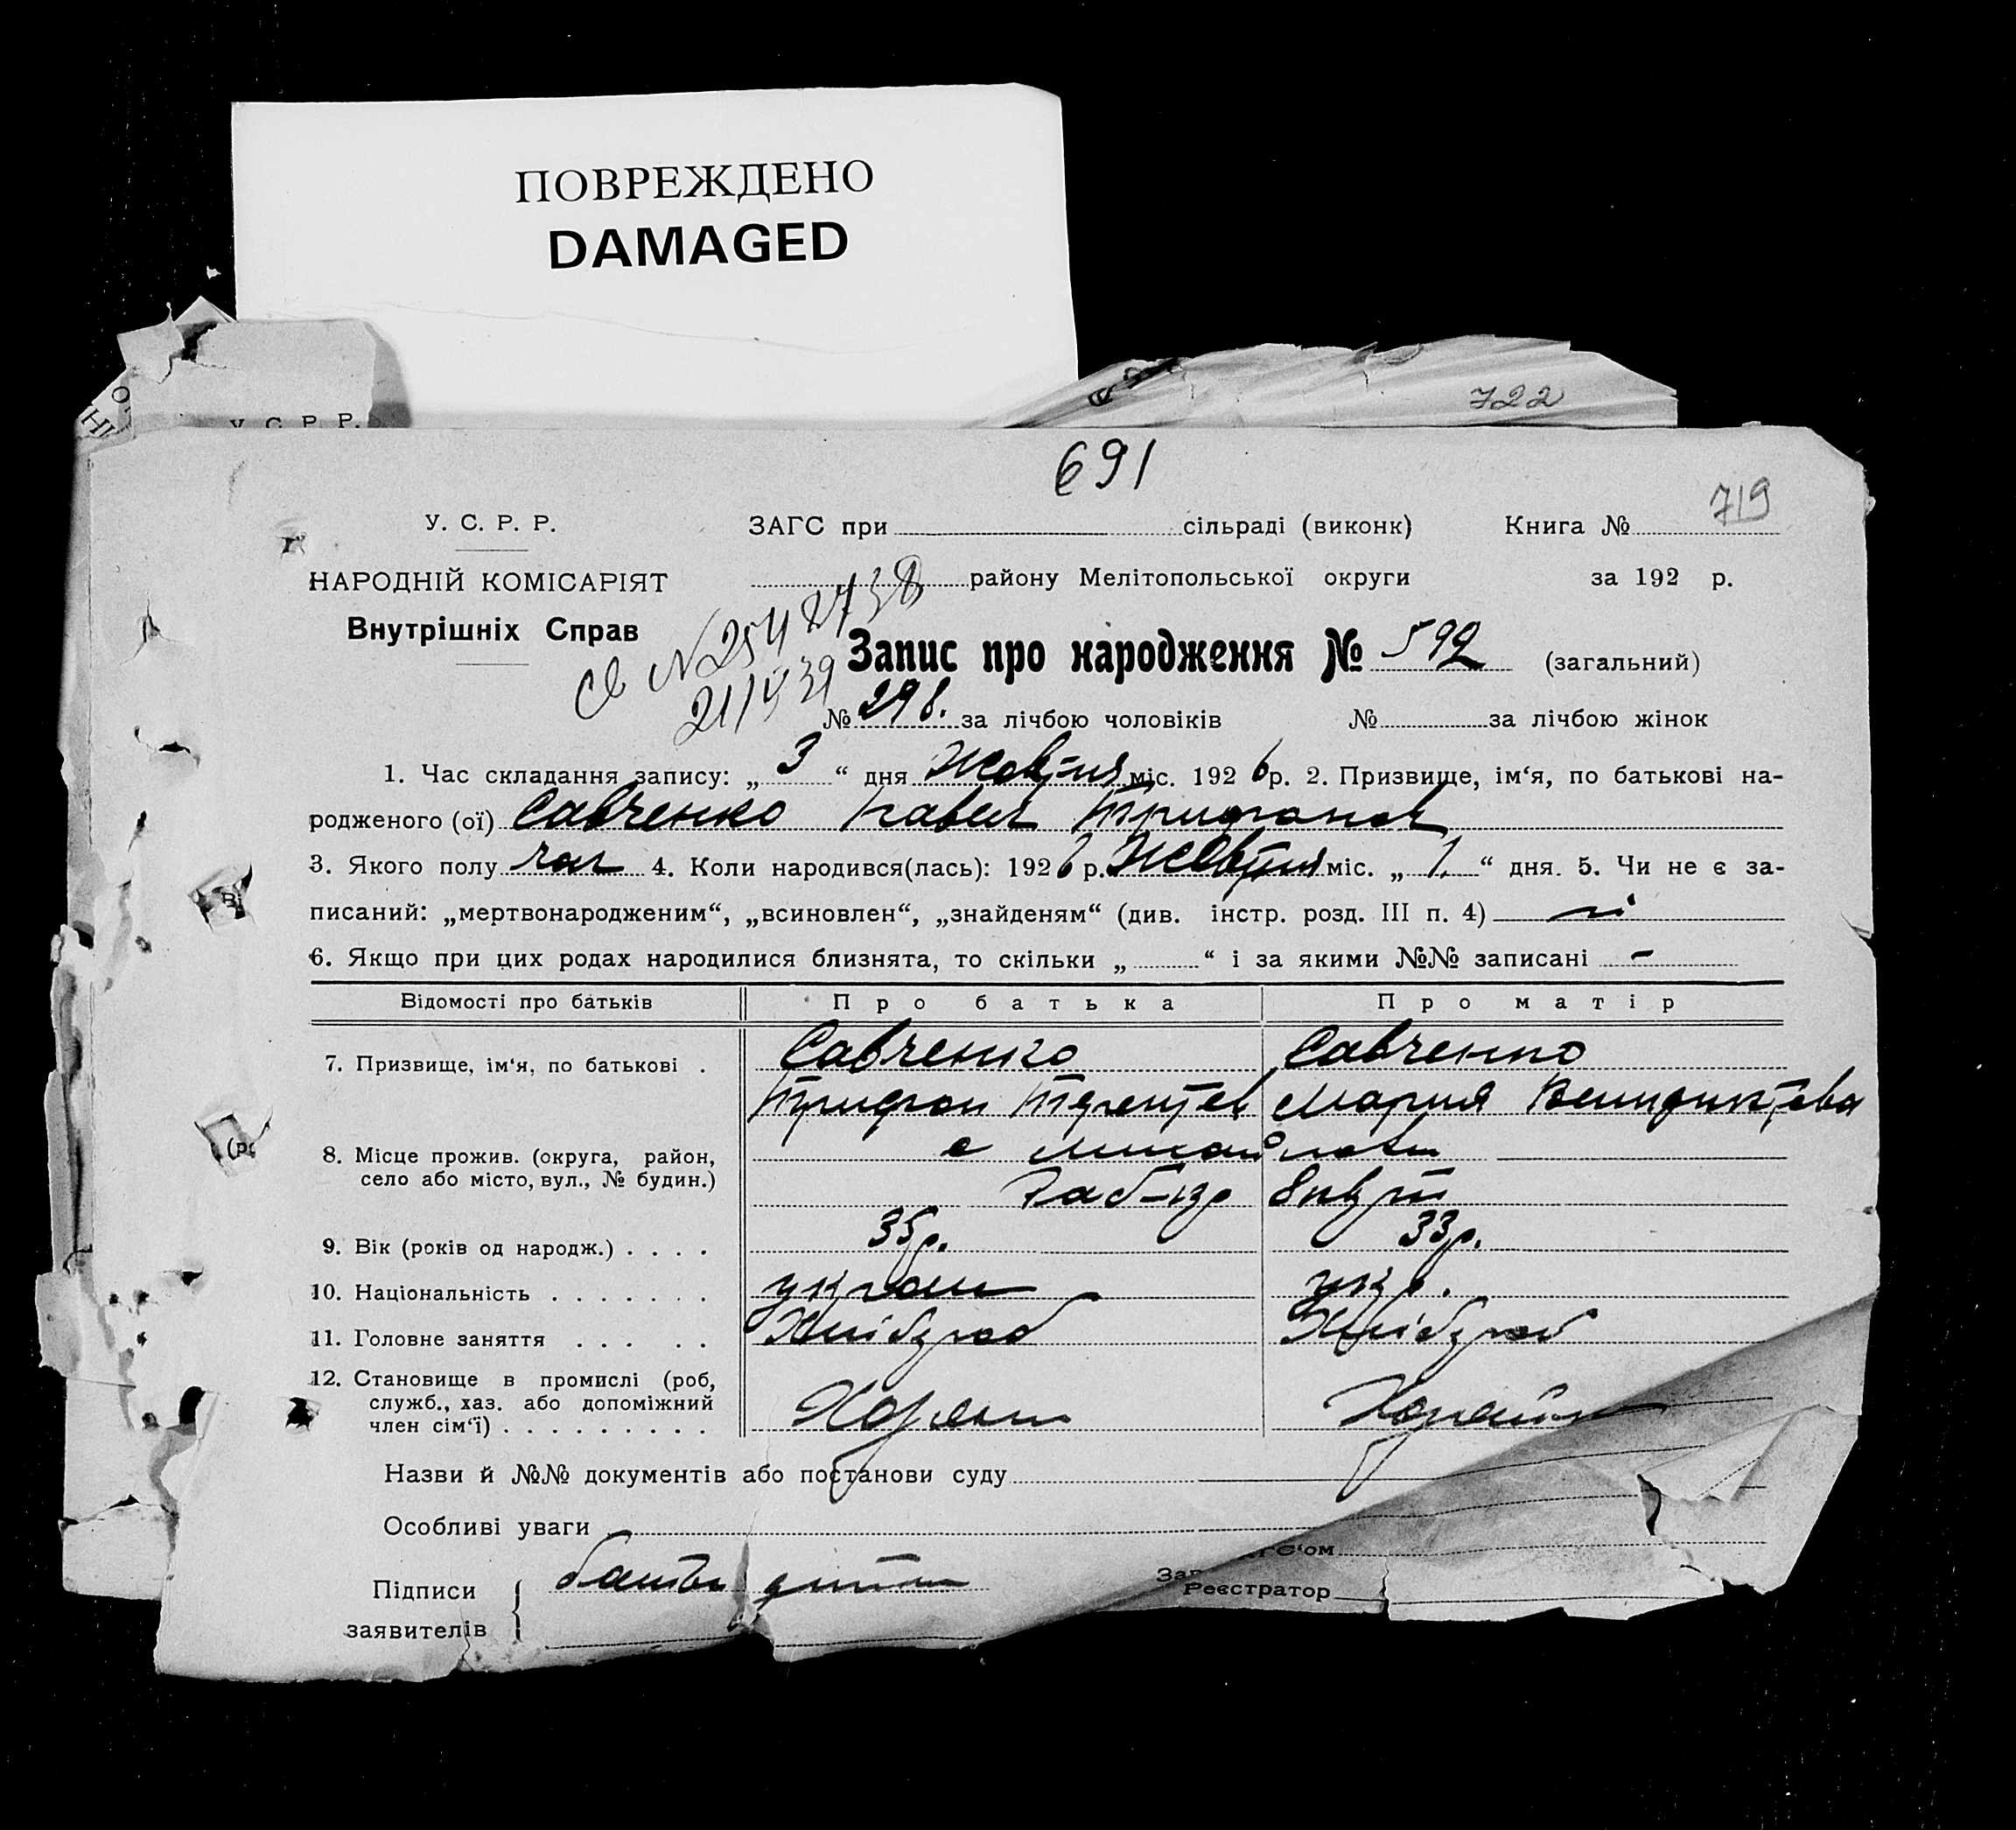 ПОВРЕЖДЕНО
DAMAGED
У. С. Р. Р.
722
691
719
У. С. Р. Р.
ЗАГС при сільраді (виконк) Книга №
НАРОДНІЙ КОМІСАРІЯТ
району Мелітопольської округи за 192 р.
Внутрішніх Справ
Запис про народження № 592 (загальний)
№ 298. за лічбою чоловіків № за лічбою жінок
1. Час складання запису: „ 3 “ дня Жовтня міс. 192 6 р. 2. Призвище, ім‘я, по батькові на-
родженого (ої) Савченко Павел Трифонов
3. Якого полу чол 4. Коли народився(лась): 192 6 р. Жовтня міс. „ 1. “ дня. 5. Чи не є за-
писаний: „мертвонародженим“, „всиновлен“, „знайденям“ (див. інстр. розд. III п. 4) ні
6. Якщо при цих родах народилися близнята, то скільки „ “ і за якими №№ записані -
Відомості про батьків Про батька Про матір
7. Призвище, ім‘я, по батькові . Савченко Савченко
Трифон Терентев Мария Венидиктова
8. Місце прожив. (округа, район,
село або місто, вул., № будин.)
9. Вік (років од народж.) . . . . 35р. 33р.
10. Національність . . . . . . . україн укр.
11. Головне заняття . . . . . Хлібороб Хлібороб
12. Становище в промислі (роб,
служб., хаз. або допоміжний
член сім‘ї) . . . . . . . . .
Назви й №№ документів або постанови суду
Особливі уваги
Підписи
заявителів
Реєстратор